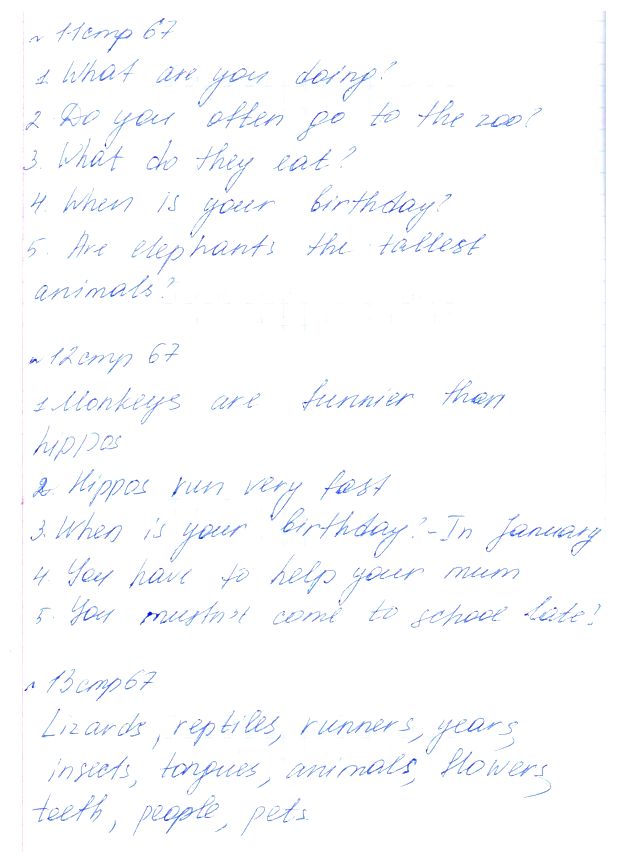 ~ 11 стр 67
1. What are you doing?
2 Do you often go to the zoo?
3. What do they eat?
4. When is your birthday?
5. Are elephants the tallest
animals?
~ 12 стр 67
1. Monkeys are funnier than
hippos
2. Hippos run very fast
3. When is your birthday? - In January
4. You have to help your mum
5. You mustn't come to school late!
~ 13 стр 67
Lizards, reptiles, runners, years,
insects, tongues, animals, flowers,
teeth, people, pets